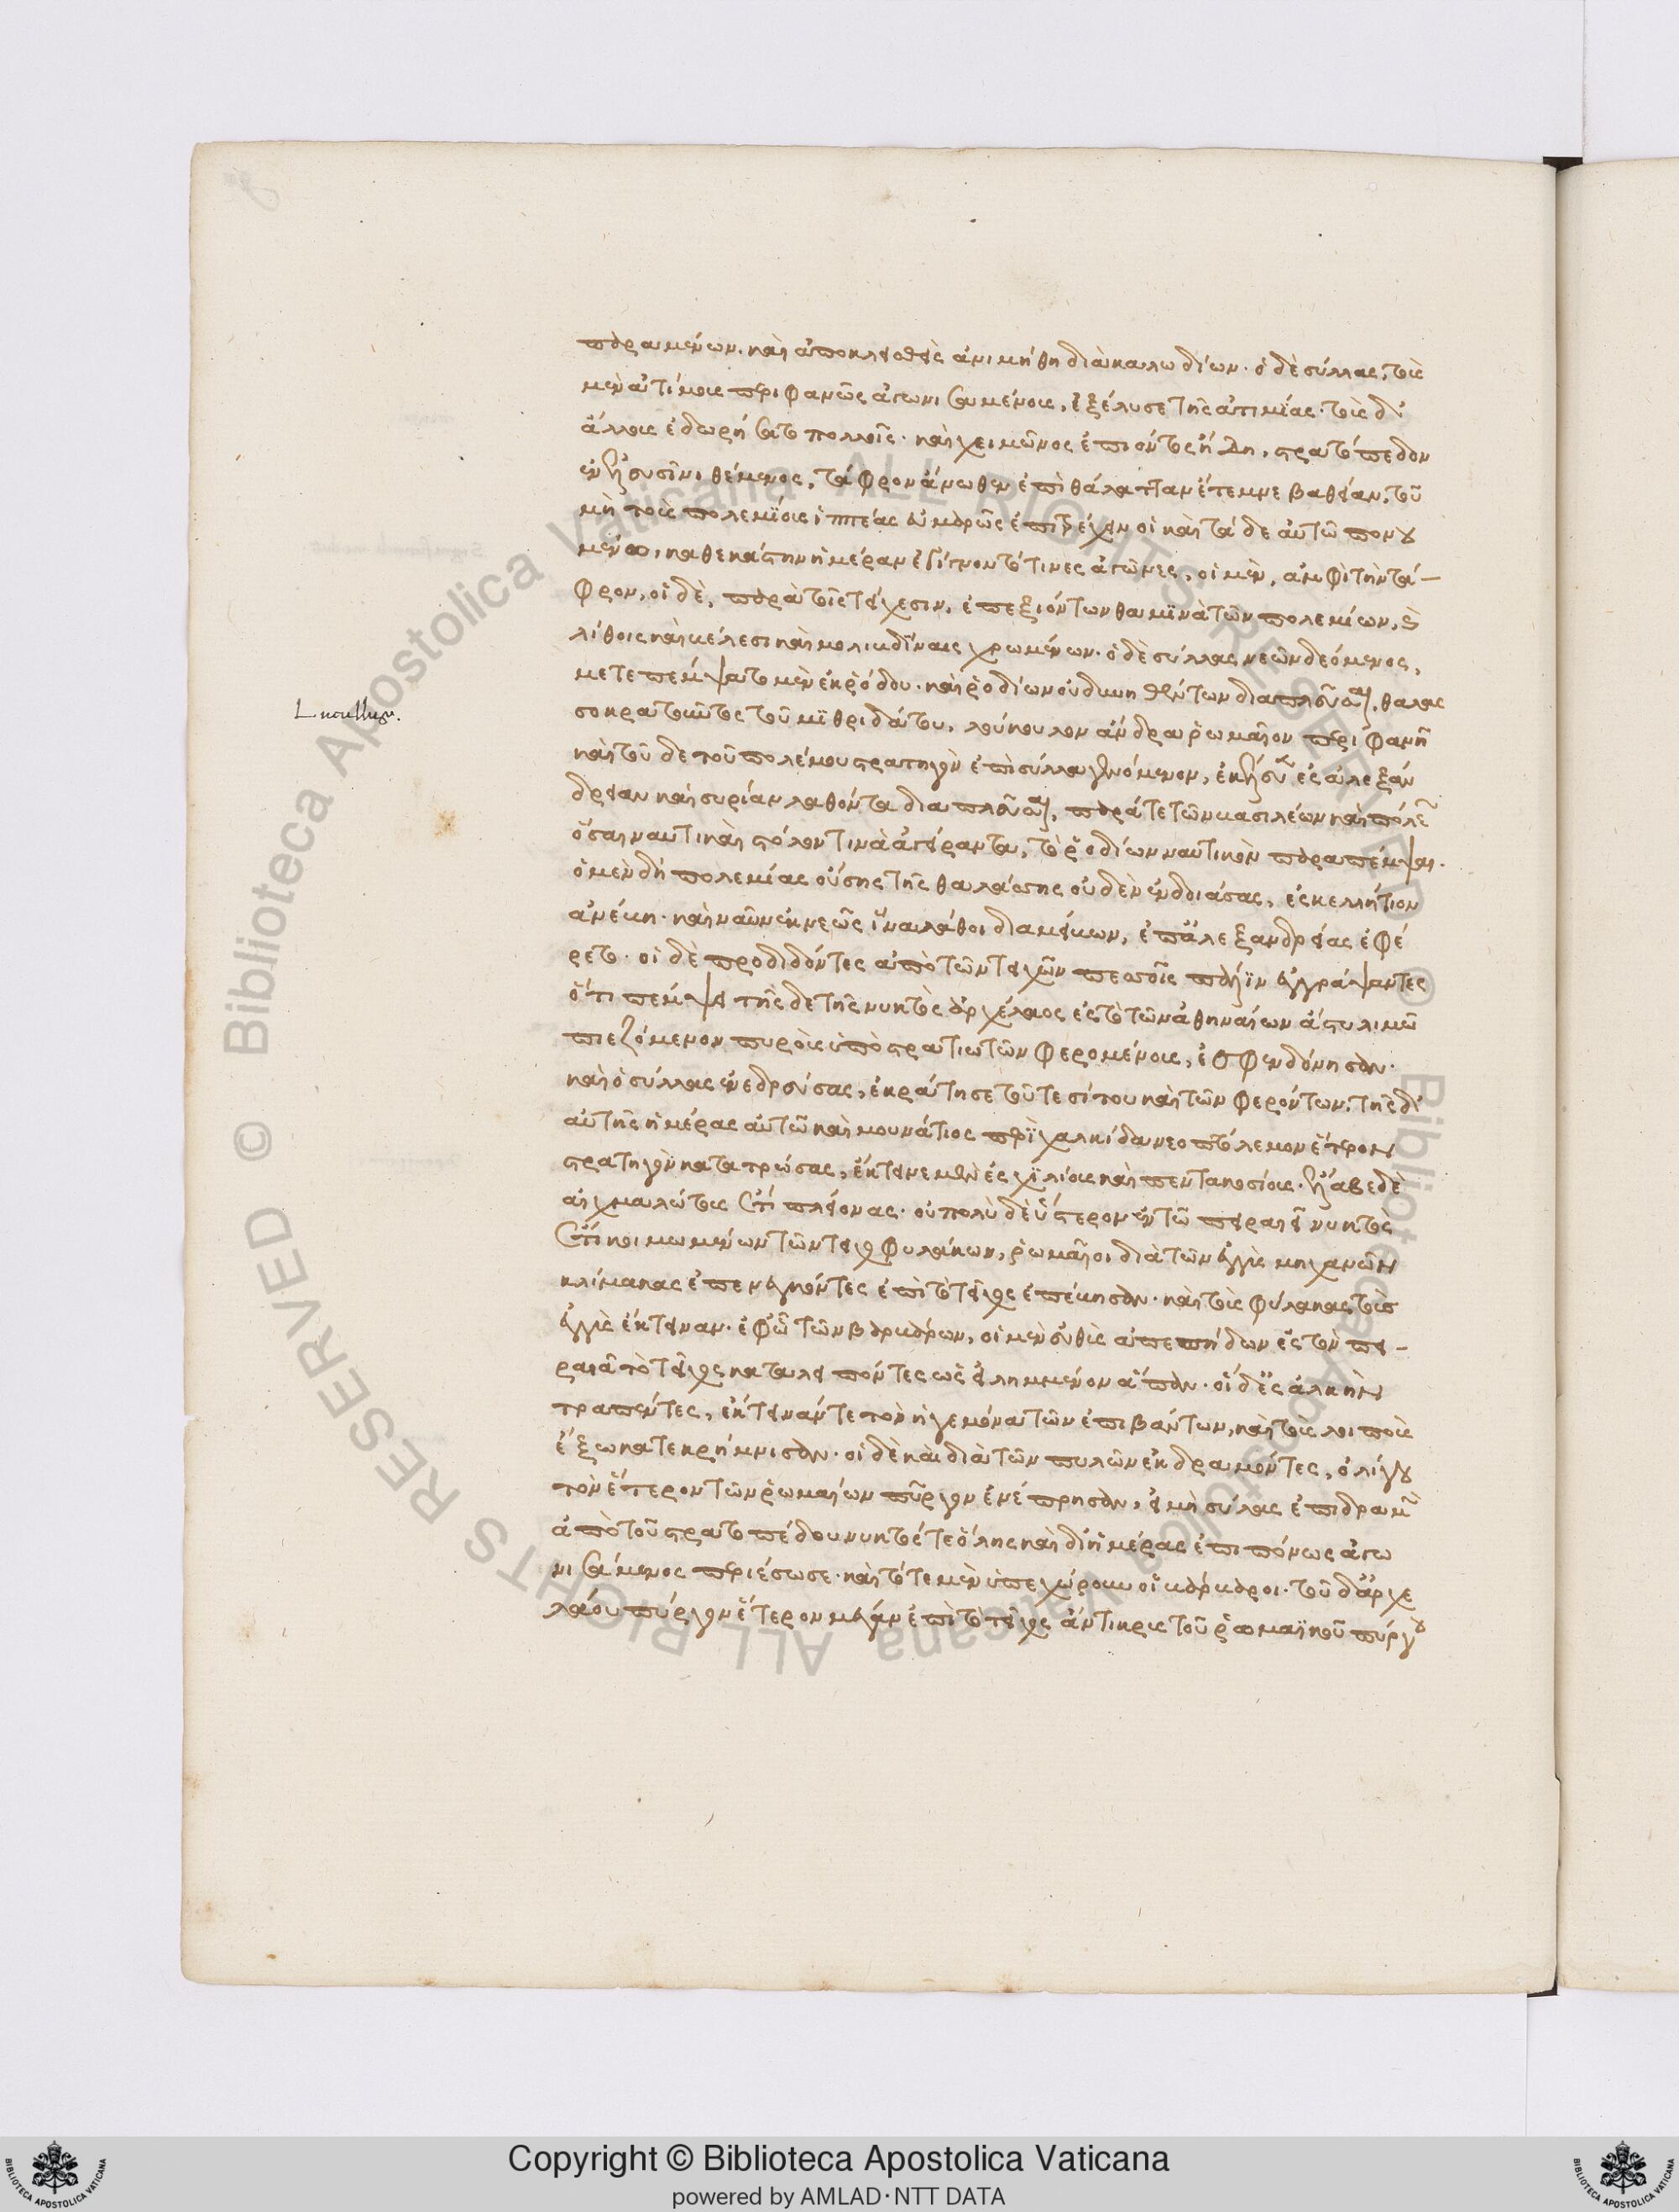 παραμενων. καὶ ἀποκλεισθεὶς ἀνιμήθη διὰ καλωδίων. ὁ δὲ σύλλας, τοὺς
μὲν ἀτίμους περιφανῶς ἀγωνισαμένους, ἐξέλυσε τῆς ἀτιμίας. τοὺς δ'
ἄλλους ἐδωρήσατο πολλοῖς. καὶ χειμῶνος ἐπιόντος ἤδη, στρατόπεδον
ἐν ἐλευσῖνι θέμενος, τάφρον ἄνωθεν ἐπὶ θάλατταν ἔτεμνε βαθεῖαν, τοῦ
μὴ τοὺς πολεμίους ἱππέας εὐμαρῶς ἐπιτρέχειν οἱ καὶ τάδε αὐτῶ πονου
μένω, καθεκάστην ἡμέραν ἐγίγνοντό τινες ἀγῶνες, οἱ μὲν, ἀμφὶ τὴν τά-
φρον, οἱ δὲ, παρὰ τοῖς τείχεσιν, ἐπεξιόντων θαμϊνὰ τῶν πολεμίων, καὶ
λίθοις καὶ βέλεσι καὶ μολυβδίναις χρωμένων. ὁ δὲ σύλλας νεῶν δεόμενος,
μετεπέμψατο μὲν ἐκ ῥόδου. καὶ ῥοδίων οὐ δυνηθέντων διαπλεῦσαι, θαλασ
σοκρατοῦντος τοῦ μϊθριδάτου, λούκουλον ἄνδρα ῥωμαῖον περιφανῆ
καὶ τοῦδε τοῦ πολέμου στρατηγὸν ἐπὶ σύλλα γενόμενον, ἐκέλευεν ἐς ἀλεξάν
δρειαν καὶ συρίαν λαθόντα διαπλεῦσαι, παρά τε τῶν βασιλέων καὶ πόλεων
ὅσαι ναυτικαὶ στόλον τινὰ ἀγείραντα, τὸ ῥοδίων ναυτικὸν παραπέμψαι.
ὁ μὲν δὴ πολεμίας οὔσης τῆς θαλάσσης οὐδὲν ἐνδοιάσας, ἐς κελήτιον
ἀνέβη. καὶ ναῦν ἐκ νεὼς ἵνα λάθοι διαμείβων, ἐπ' ἀλεξανδρείας ἐφέ
ρετο. οἱ δὲ προδιδόντες ἀπὸ τῶν τειχῶν πεσσοῖς πάλϊν ἐγγράψαντες
ὅτι πέμψει τῆσδε τῆς νυκτὸς ἀρχέλαος ἐς τὸ τῶν ἀθηναίων ἄστυ λιμῶ
πιεζόμενον πυροὺς ὑπὸ στρατιωτῶν φερομένους, ἐσφενδόνησαν.
καὶ ὁ σύλλας ἐνεδρεύσας, ἐκράτησε τοῦ τε σίτου καὶ τῶν φερόντων. τῆς δ'
αὐτῆς ἡμέρας αὐτῶ καὶ μουνάτιος περὶ χαλκίδα νεοπτόλεμον ἕτερον
στρατηγὸν κατατρώσας, ἔκτεινε μὲν ἐς χϊλίους καὶ πεντακοσίους. ἔλαβε δὲ
αἰχμαλώτους ἔτι πλείονας. οὐ πολὺ δὲ ὕστερον ἐν τῶ πειραιεῖ νυκτὸς
ἔτι κοιμωμένων τῶν τειχοφυλάκων, ῥωμαῖοι διὰ τῶν ἐγγὺς μηχανῶν
κλίμακας ἐπενεγκόντες ἐπὶ τὸ τεῖχος ἐπέβησαν. καὶ τοὺς φύλακας τοὺς
ἐγγὺς ἔκτειναν. ἐφ' ὧ τῶν βαρβάρων, οἱ μὲν εὐθὺς ἀπεπήδων ἐς τὸν πει-
ραιᾶ τὸ τεῖχος καταλειπόντες ὡς εἰλημμένον ἅπαν. οἱ δ' ἐς ἀλκὴν
τραπέντες, ἔκτεινάν τε τὸν ἡγεμόνα τῶν ἐπιβάντων, καὶ τοὺς λοιποὺς
ἔξω κατεκρήμνισαν. οἱ δὲ καὶ διὰ τῶν πυλῶν ἐκδραμόντες, ὀλίγου
τὸν ἕτερον τῶν ῥωμαίων πύργον ἐνέπρησαν, εἰ μὴ σύλας ἐπιδραμὼν
ἀπὸ τοῦ στρατοπέδου νυκτός τε ὅλης καὶ δι' ἡμέρας ἐπιπόνως ἀγω
νισάμενος περιέσωσε. καὶ τότε μὲν ὑπεχώρουν οἱ βάρβαροι. τοῦ δ' ἀρχε
λάου πύργον ἕτερον μέγαν ἐπὶ τὸ τεῖχος ἄντικρυς τοῦ ῥωμαϊκοῦ πύργου
Lucullus.
Copyright © Biblioteca Apostolica Vaticana
powered by AMLAD·NTT DATA
© Biblioteca Apostolica Vaticana ALL RIGHTS RESERVED
© Biblioteca Apostolica Vaticana ALL RIGHTS RESERVED
BIBLIOTECA APOSTOLICA VATICANA
BIBLIOTECA APOSTOLICA VATICANA